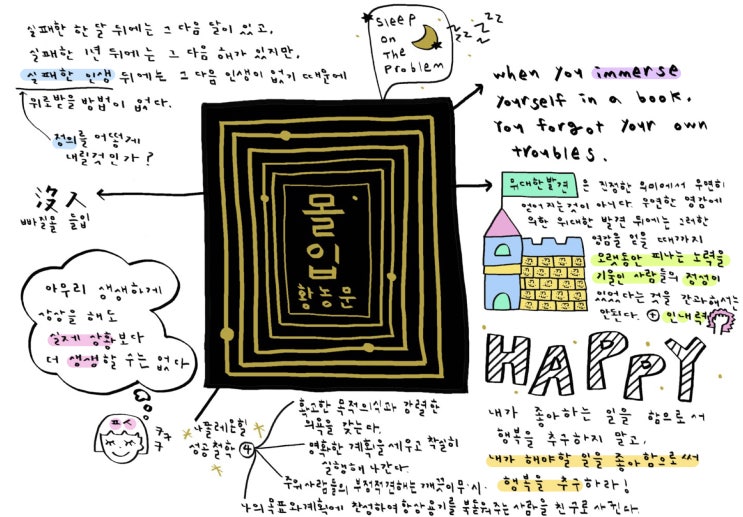 실패한 한 달 뒤에는 그 다음 달이 있고,
실패한 1년 뒤에는 그 다음 해가 있지만,
실패한 인생 뒤에는 그 다음 인생이 없기 때문에
위로받을 방법이 없다.
정의를 어떻게
내릴것인가?
sleep
on
The
problem
zzz
zz
when you immerse
yourself in a book,
You forgot your own
troubles.
沒入
빠질몰 들입
몰
입
황농문
위대한발견은 진정한 의미에서 우연히
얻어지는것이 아니다. 우연한 영감에
의한 위대한 발견 뒤에는 그러한
영감을 얻을 때까지
오랫동안 피나는 노력을
기울인 사람들의 정성이
있었다는 것을 간과해서는
안된다. + 인내력
아무리 생생하게
상상을 해도
실제 상황보다
더 생생할 수는 없다
ㅋㅋㅋ
HAPPY
내가 좋아하는 일을 함으로서
행복을 추구하지 말고,
내가 해야할 일을 좋아함으로써
행복을 추구하라!
나폴레온힐
성공철학 4
확고한 목적의식과 강렬한
의욕을 갖는다.
명확한 계획을 세우고 착실히
실행해 나간다.
주위사람들의 부정적견해는 깨끗이무·시.
나의 목표와계획에 찬성하여 항상용기를 북돋워주는 사람을 친구로 사귄다.